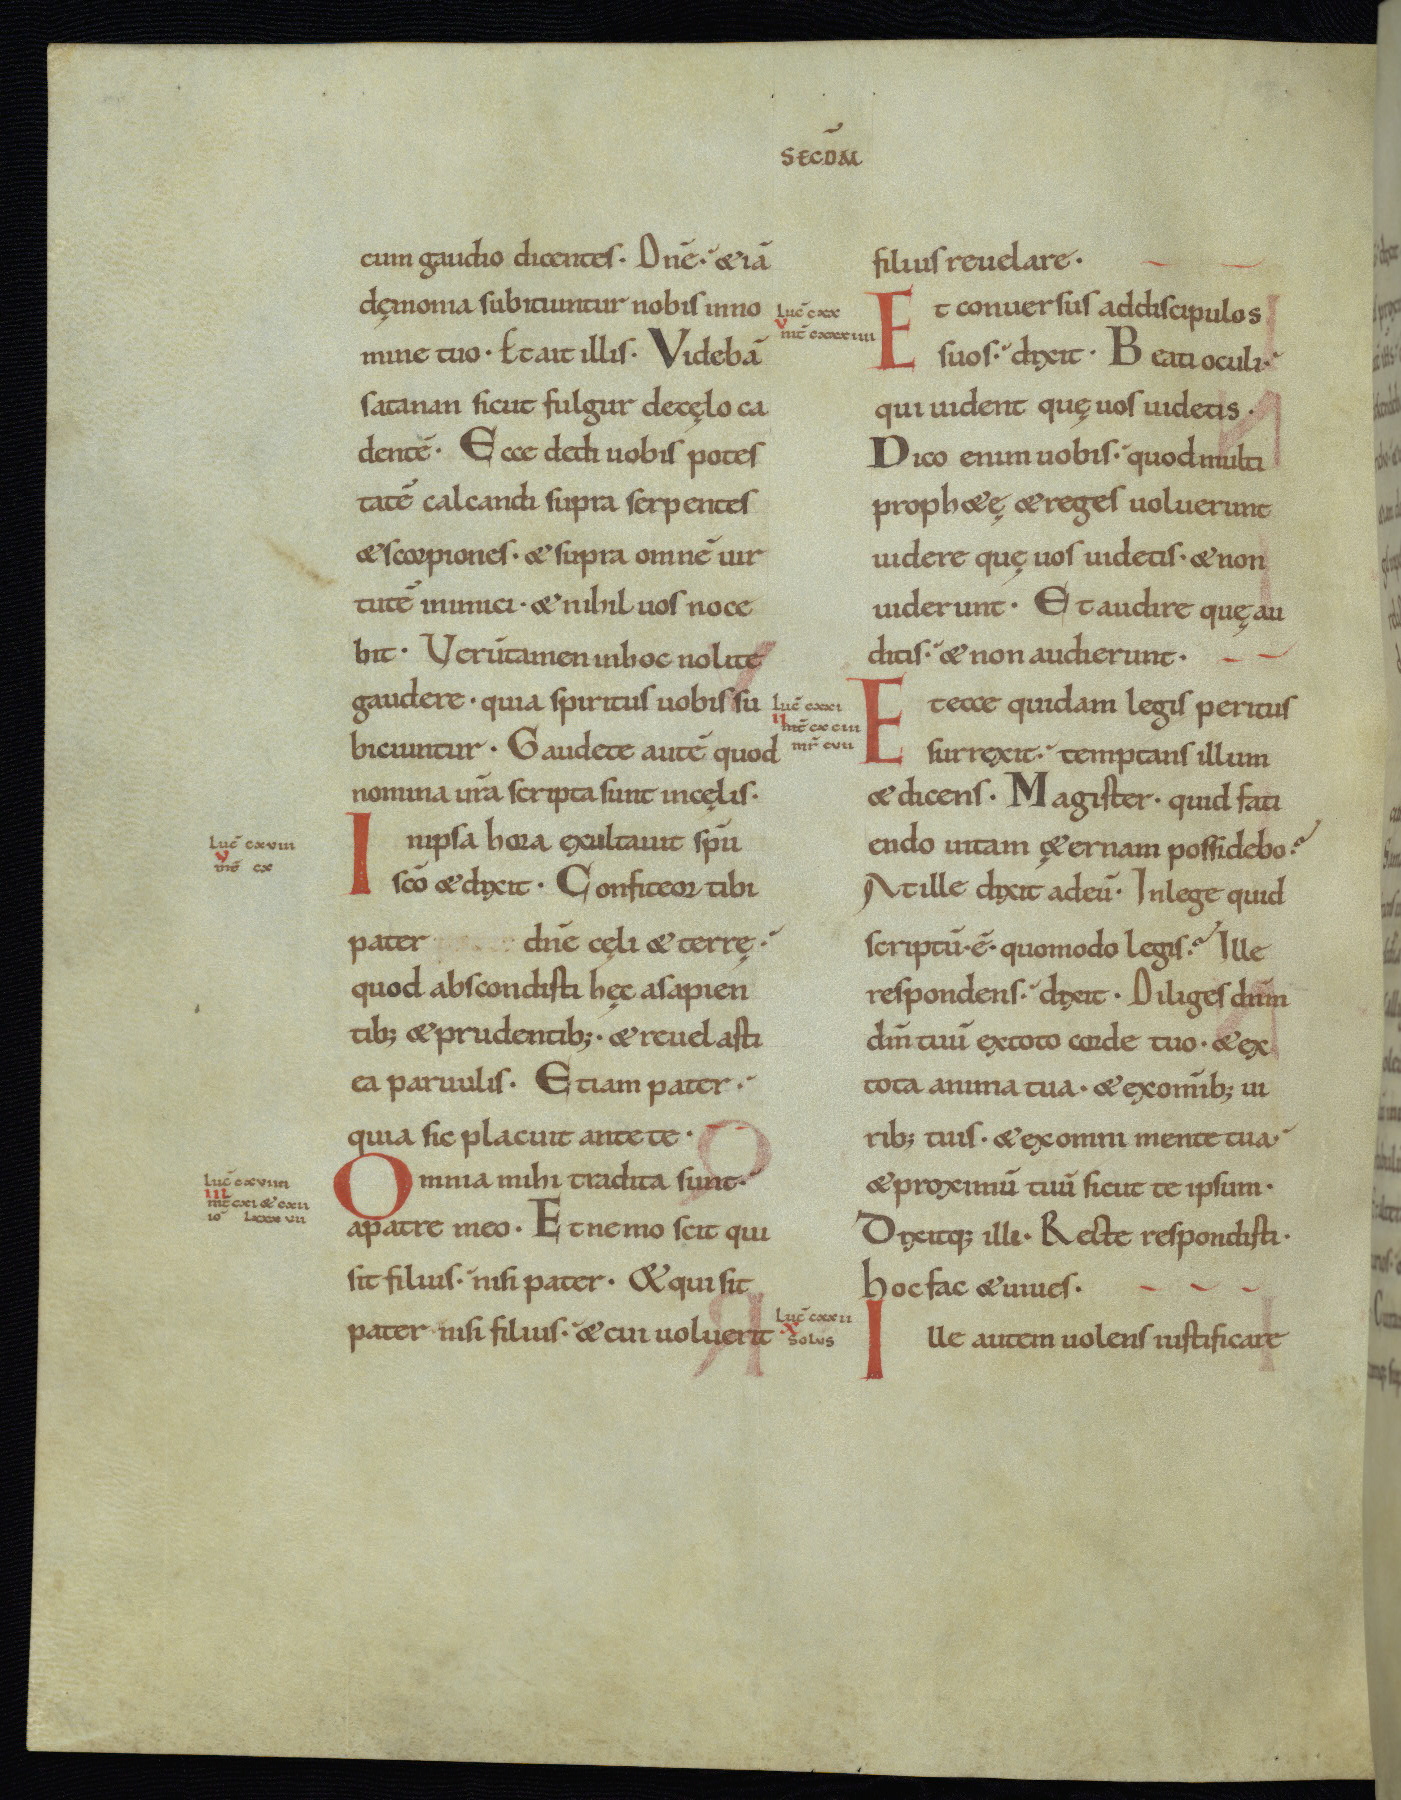 SECDM̄
cum gaudio dicentes. Dnē. & iā
dęmonia subiciuntur nobis in no
mine tuo. Et ait illis. Videbā
satanan sicut fulgur de cęlo ca
dentē. Ecce dedi uobis potes
tatē calcandi supra serpentes
& scorpiones. & supra omnē uir
tutē inimici. & nihil uos noce
bit. Verūtamen in hoc nolite
gaudere. quia spiritus uobis su
biciuntur. Gaudete autē quod
nomina ur̄a scripta sunt in cęlis.
Luc̄ cxviiii
v
mt̄ cx
In ipsa hora exultauit sp̄u
sc̄o & dixit. Confiteor tibi
pater dn̄e cęli & terrę.
quod abscondisti hęc a sapien
tib; & prudentib;. & reuelasti
ea paruulis. Etiam pater.
quia sic placuit ante te.
Luc̄ cxviiii
III
mt̄ cxi & cxii
io lxxxvii
Omnia mihi tradita sunt
a patre meo. Et nemo scit qui
sit filius. nisi pater. & qui sit
pater nisi filius. & cui uoluerit
filius reuelare.
Luc̄ cxx
v
mt̄ cxxxiiii
Et conuersus ad discipulos
suos. dixit. Beati oculi.
qui uident quę uos uidetis.
Dico enim uobis. quod multi
proph&ę & reges uoluerunt
uidere quę uos uidetis. & non
uiderunt. Et audire quę au
ditis. & non audierunt.
Luc̄ cxxi
II
mt̄ cxciii
mr̄ cvii
Et ecce quidam legis peritus
surrexit. temptans illum
& dicens. Magister. quid fati
endo uitam ę&ernam possidebo.
At ille dixit ad eū. In lege quid
scriptū.ē. quomodo legis. Ille
respondens. dixit. Diliges dn̄m
dm̄ tuū ex toto corde tuo. & ex
tota anima tua. & ex omīb; ui
rib; tuis. & ex omni mente tua.
& proximū tuū sicut te ipsum.
Dixitq; illi. Recte respondisti.
hoc fac & uiues.
Luc̄ cxxii
X
solus
Ille autem uolens iustificare